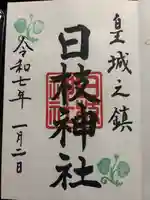 皇城之鎮
日枝神社
令和七年 一月二日